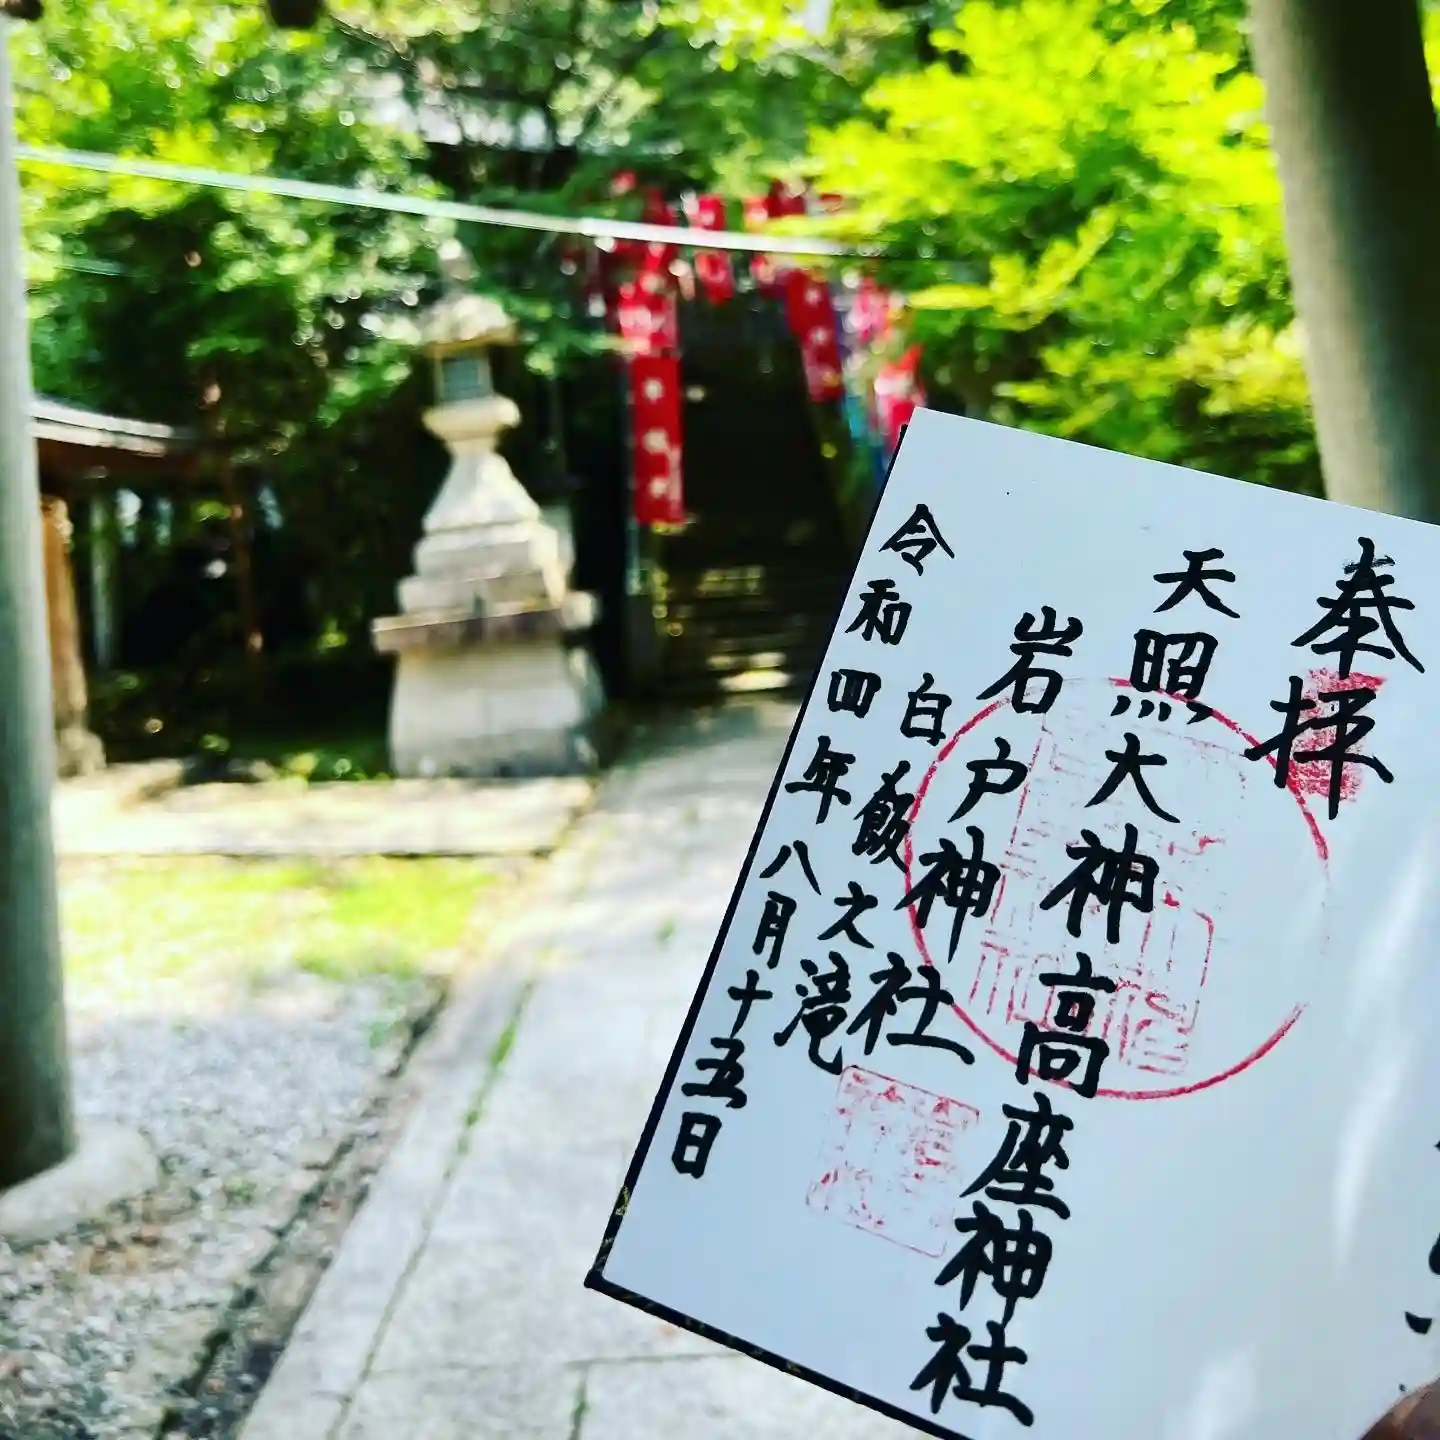 奉拝
天照大神高座神社
岩戸神社
白飯之滝
令和四年八月十五日